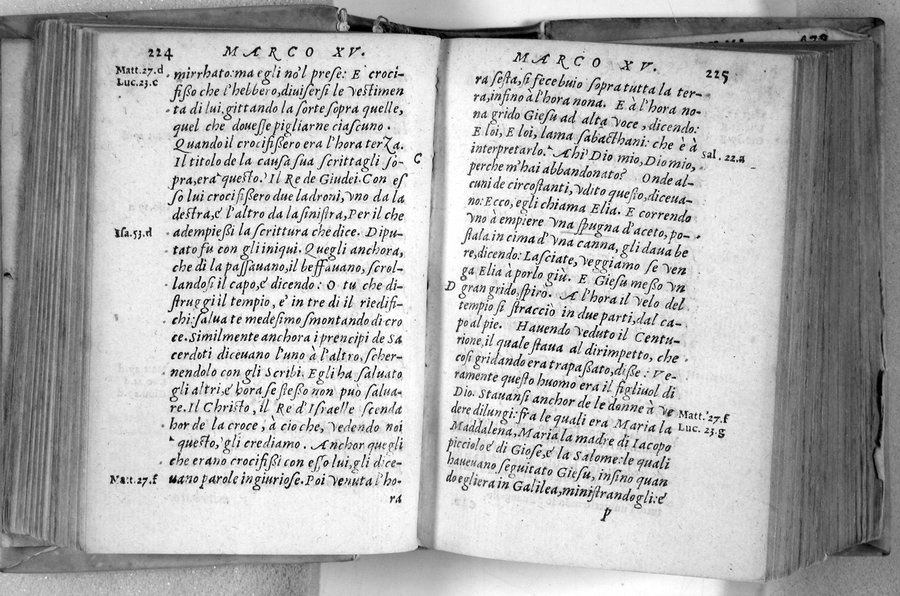 224 MARCO XV.
Matt.27.d mirrhato: ma egli nò'l prese: E croci-
Luc.23.c fißo che l'hebbero, diuisersi le vestimen
ta di lui, gittando la sorte sopra quelle,
quel che douesse pigliarne ciascuno.
Quando il crocifißero era l'hora terza.
Il titolo de la causa sua scrittagli so-
C
pra, era questo. Il Re de Giudei. Con es
so lui crocifißero due ladroni, vno da la
destra, e' l'altro da la sinistra, Per il che
Isa.53.d adempießi la scrittura che dice. Dipu-
tato fu con gli iniqui. Quegli anchora,
che di la passauano, il beffauano, scrol-
landosi il capo, è dicendo: O tu che di-
struggi il tempio, e' in tre di il riedifi-
chi: salua te medesimo smontando di cro
ce. Similmente anchora i prencipi de Sa
cerdoti diceuano l'uno à l'altro, scher-
nendolo con gli Scribi. Egli ha saluato
gli altri, e' hora se steßo non può salua-
re. Il Christo, il Re d'Israelle scenda
hor de la croce, à cio che, vedendo noi
questo, gli crediamo. Anchor quegli
che erano crocifißi con esso lui, gli dice-
Matt.27.f uano parole ingiuriose. Poi venuta l'ho-
ra
MARCO XV. 225
ra sesta, si fece buio sopra tutta la ter-
ra, infino à l'hora nona. E à l'hora no-
na grido Giesu ad alta voce, dicendo:
E loi, E loi, lama sabacthani: che è à
interpretarlo. Ahi Dio mio, Dio mio, Sal. 22.a
perche m'hai abbandonato? Onde al-
cuni de circostanti, vdito questo, diceua-
no: Ecco, egli chiama Elia. E correndo
vno à empiere vna spugna d'aceto, po-
stala in cima d'vna canna, gli daua be
re, dicendo: Lasciate, veggiamo se ven
ga Elia à porlo giù. E Giesu meßo vn
D gran grido, spirò. A l'hora il velo del
tempio si stracciò in due parti, dal ca-
po al pie. Hauendo veduto il Centu-
rione, il quale staua al dirimpetto, che
cosi gridando era trapaßato, diße: Ve-
ramente questo huomo era il figliuol di
Dio. Stauansi anchor de le donne à ve Matt.27.f
dere di lungi: fra le quali era Maria la Luc. 23.g
Maddalena, Maria la madre di Iacopo
picciolo e' di Giose, e' la Salome: le quali
haueuano seguitato Giesu, infino quan
do egli era in Galilea, ministrandogli: e'
P